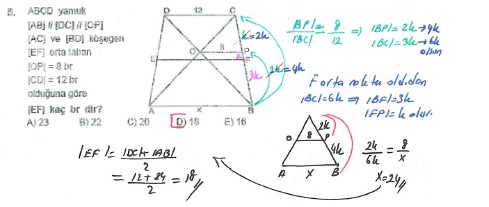 5. ABCD yamuk
[AB] // [DC] // [OP]
[AC] ve [BD] köşegen
[EF] orta taban
|OP| = 8 br
|CD| = 12 br
olduğuna göre
|EF| kaç br dir?
A) 23 B) 22 C) 20 D) 18 E) 16
D 12 C
k=2k
O 8 P
E F
3k
2k=4k
A x B
|BP|/|BC| = 8/12 ⇒ |BP|=2k→4k
|BC|=3k→6k olur.
F orta nokta olduğundan
|BC|=6k ⇒ |BF|=3k
|FP|=k olur.
2k
O 8 P
4k
A x B
2k/6k = 8/x
x=24
|EF|= |DC|+|AB| / 2
= 12+24 / 2 = 18